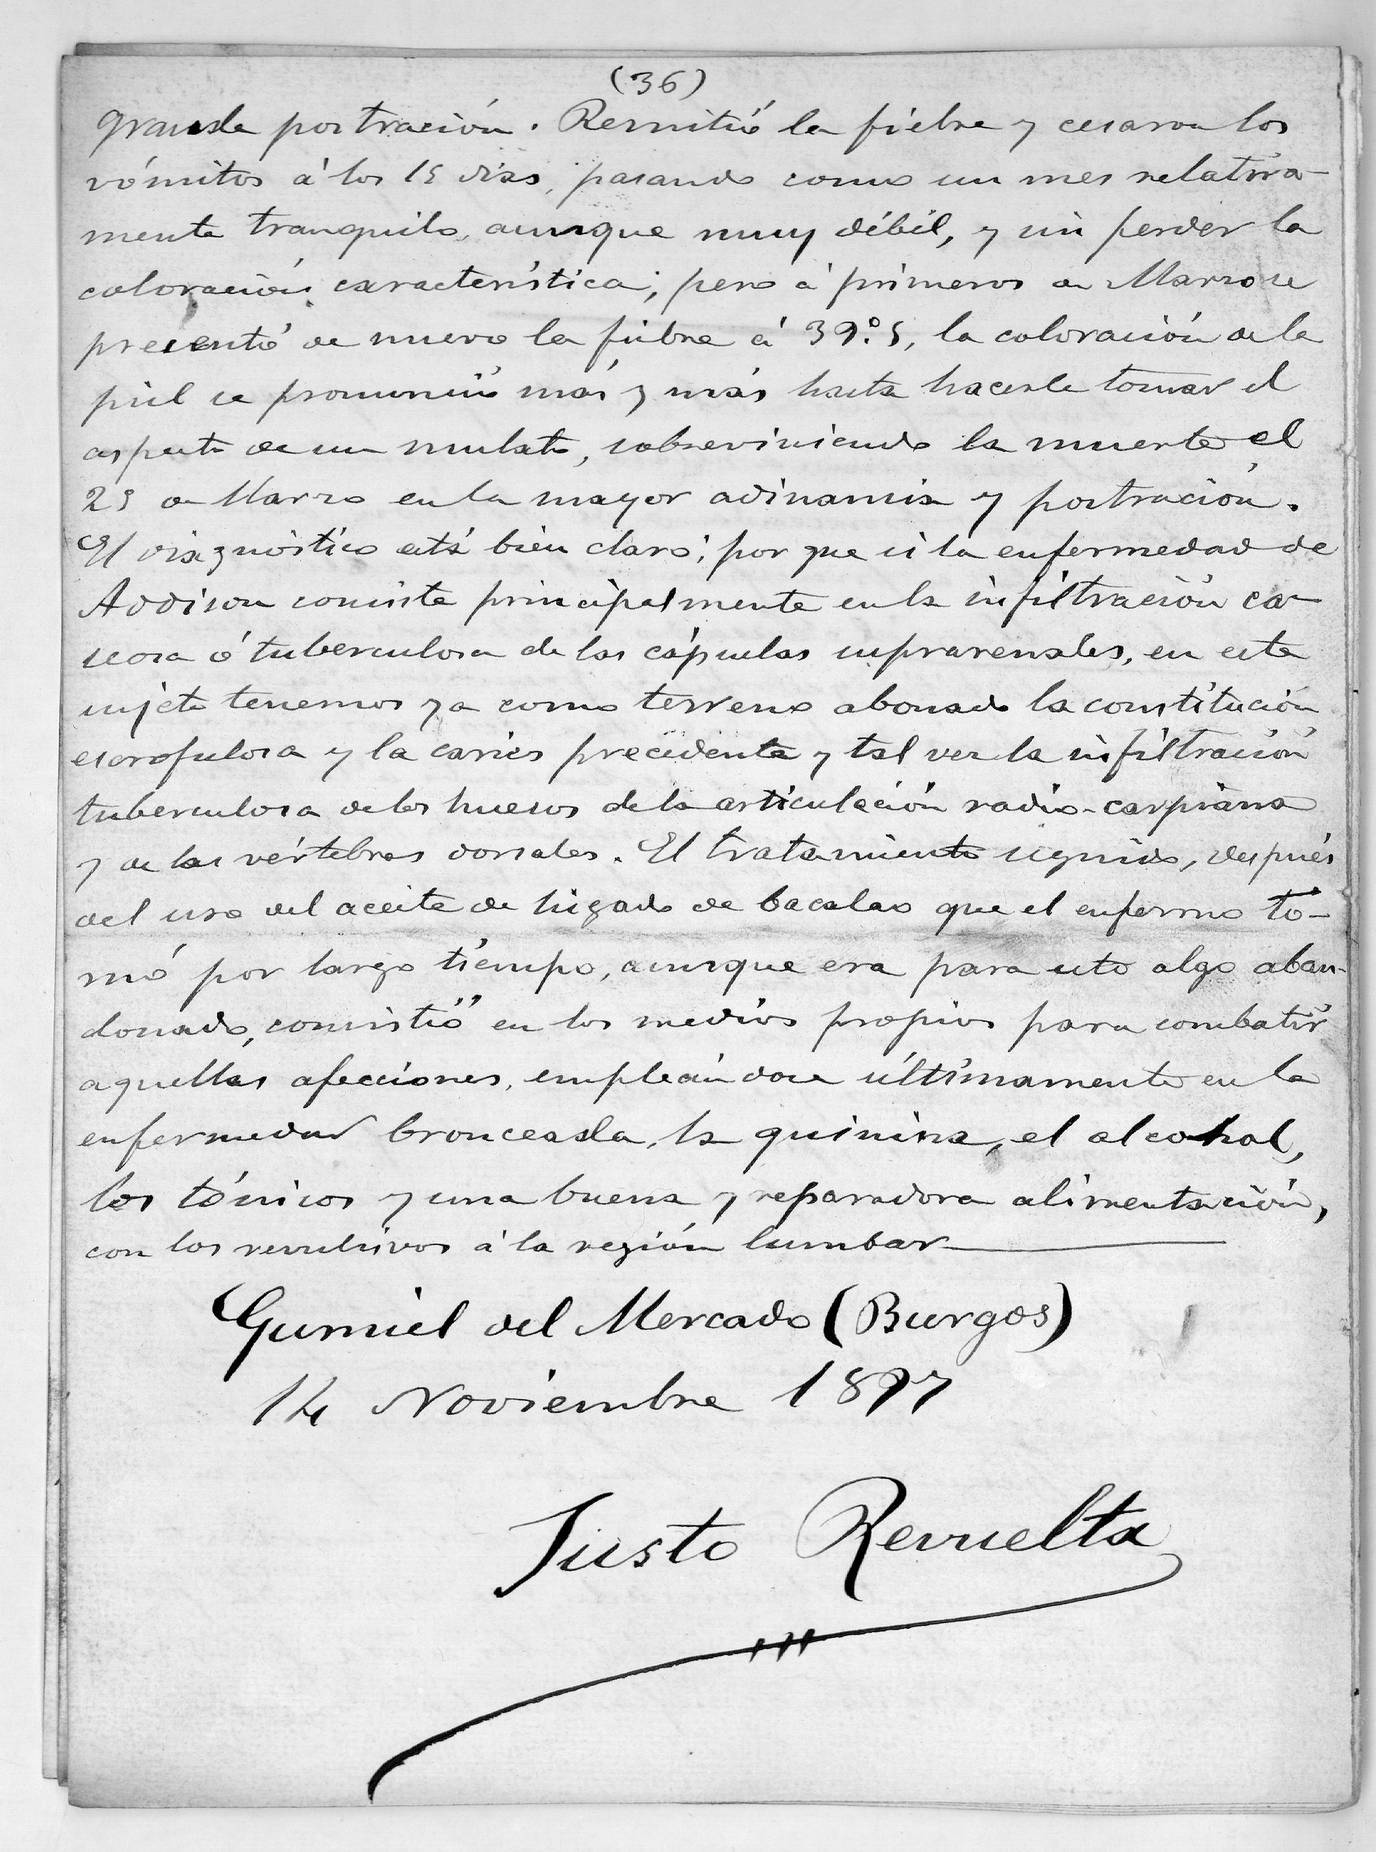 (36)
grande postración. Remitió la fiebre y cesaron los
vómitos á los 15 dias, pasando como un mes relativa-
mente tranquilo, aunque muy débil, y sin perder la
coloración característica; pero á primeros de Marzo se
presentó de nuevo la fiebre á 39.º5, la coloración de la
piel se pronunció más y más hasta hacerle tomar el
aspecto de un mulato, sobreviniendo la muerte el
25 de Marzo en la mayor adinamia y postración.
El diagnóstico está bien claro; por que si la enfermedad de
Addison consiste principalmente en la infiltración ca-
seosa ó tuberculosa de las cápsulas suprarenales, en este
sujeto tenemos ya como terreno abonado la constitución
escrofulosa y la caries precedente y tal vez la infiltración
tuberculosa de los huesos de la articulación radio-carpiana
y de las vértebras dorsales. El tratamiento seguido, después
del uso del aceite de higado de bacalao que el enfermo to-
mó por largo tiempo, aunque era para esto algo aban-
donado, consistió en los medios propios para combatir
aquellas afecciones, empleándose últimamente en la
enfermedad bronceada, la quinina, el alcohol,
los tónicos y una buena y reparadora alimentación,
con los revulsivos á la región lumbar
Gumiel del Mercado (Burgos)
14 Noviembre 1897
Justo Revuelta